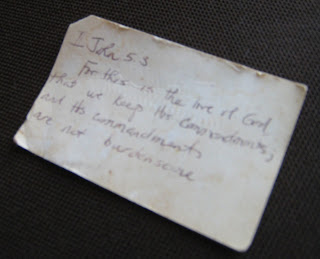 I John 5:3
For this is the love of God
that we keep His commandments,
and His commandments
are not burdensome